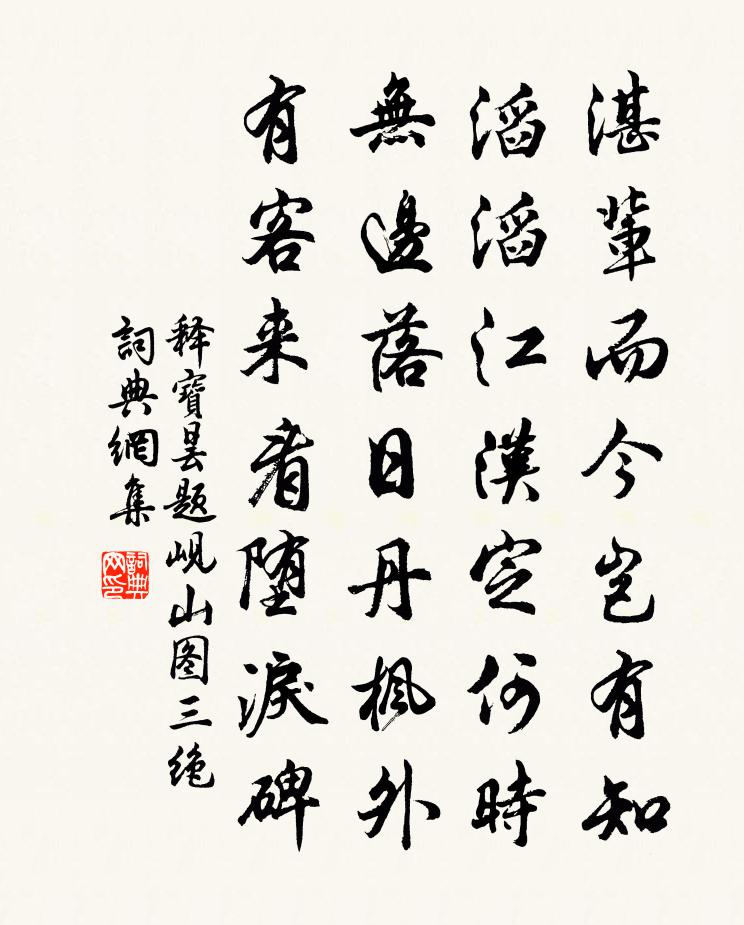 湛輩而今豈有知
滔滔江漢定何時
無邊落日丹楓外
有客来看堕淚碑
释寶曇题岘山图三绝
詞典網集
詞典网印